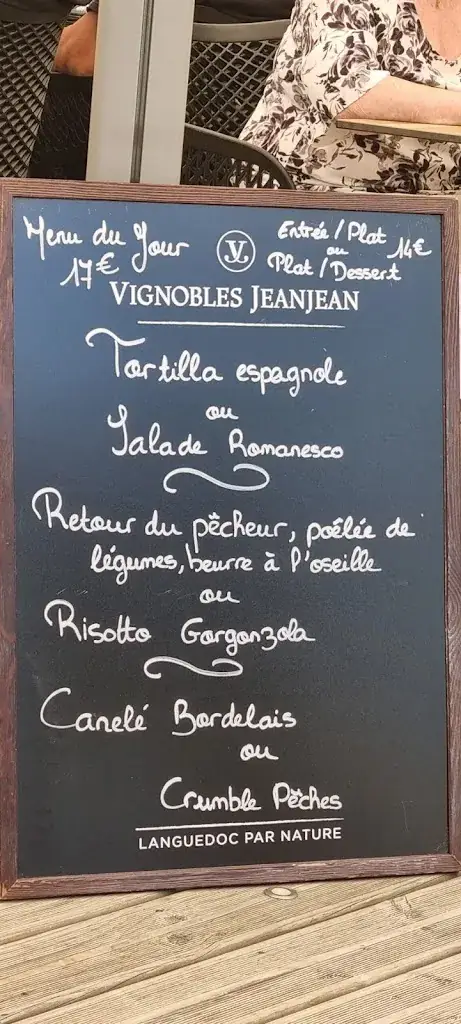 Menu du Jour
17€
Entrée / Plat
ou
Plat / Dessert
14€
VJ
VIGNOBLES JEANJEAN
Tortilla espagnole
ou
Salade Romanesco
Retour du pêcheur, poêlée de
légumes, beurre à l'oseille
ou
Risotto Gorgonzola
Canelé Bordelais
ou
Crumble Pêches
LANGUEDOC PAR NATURE